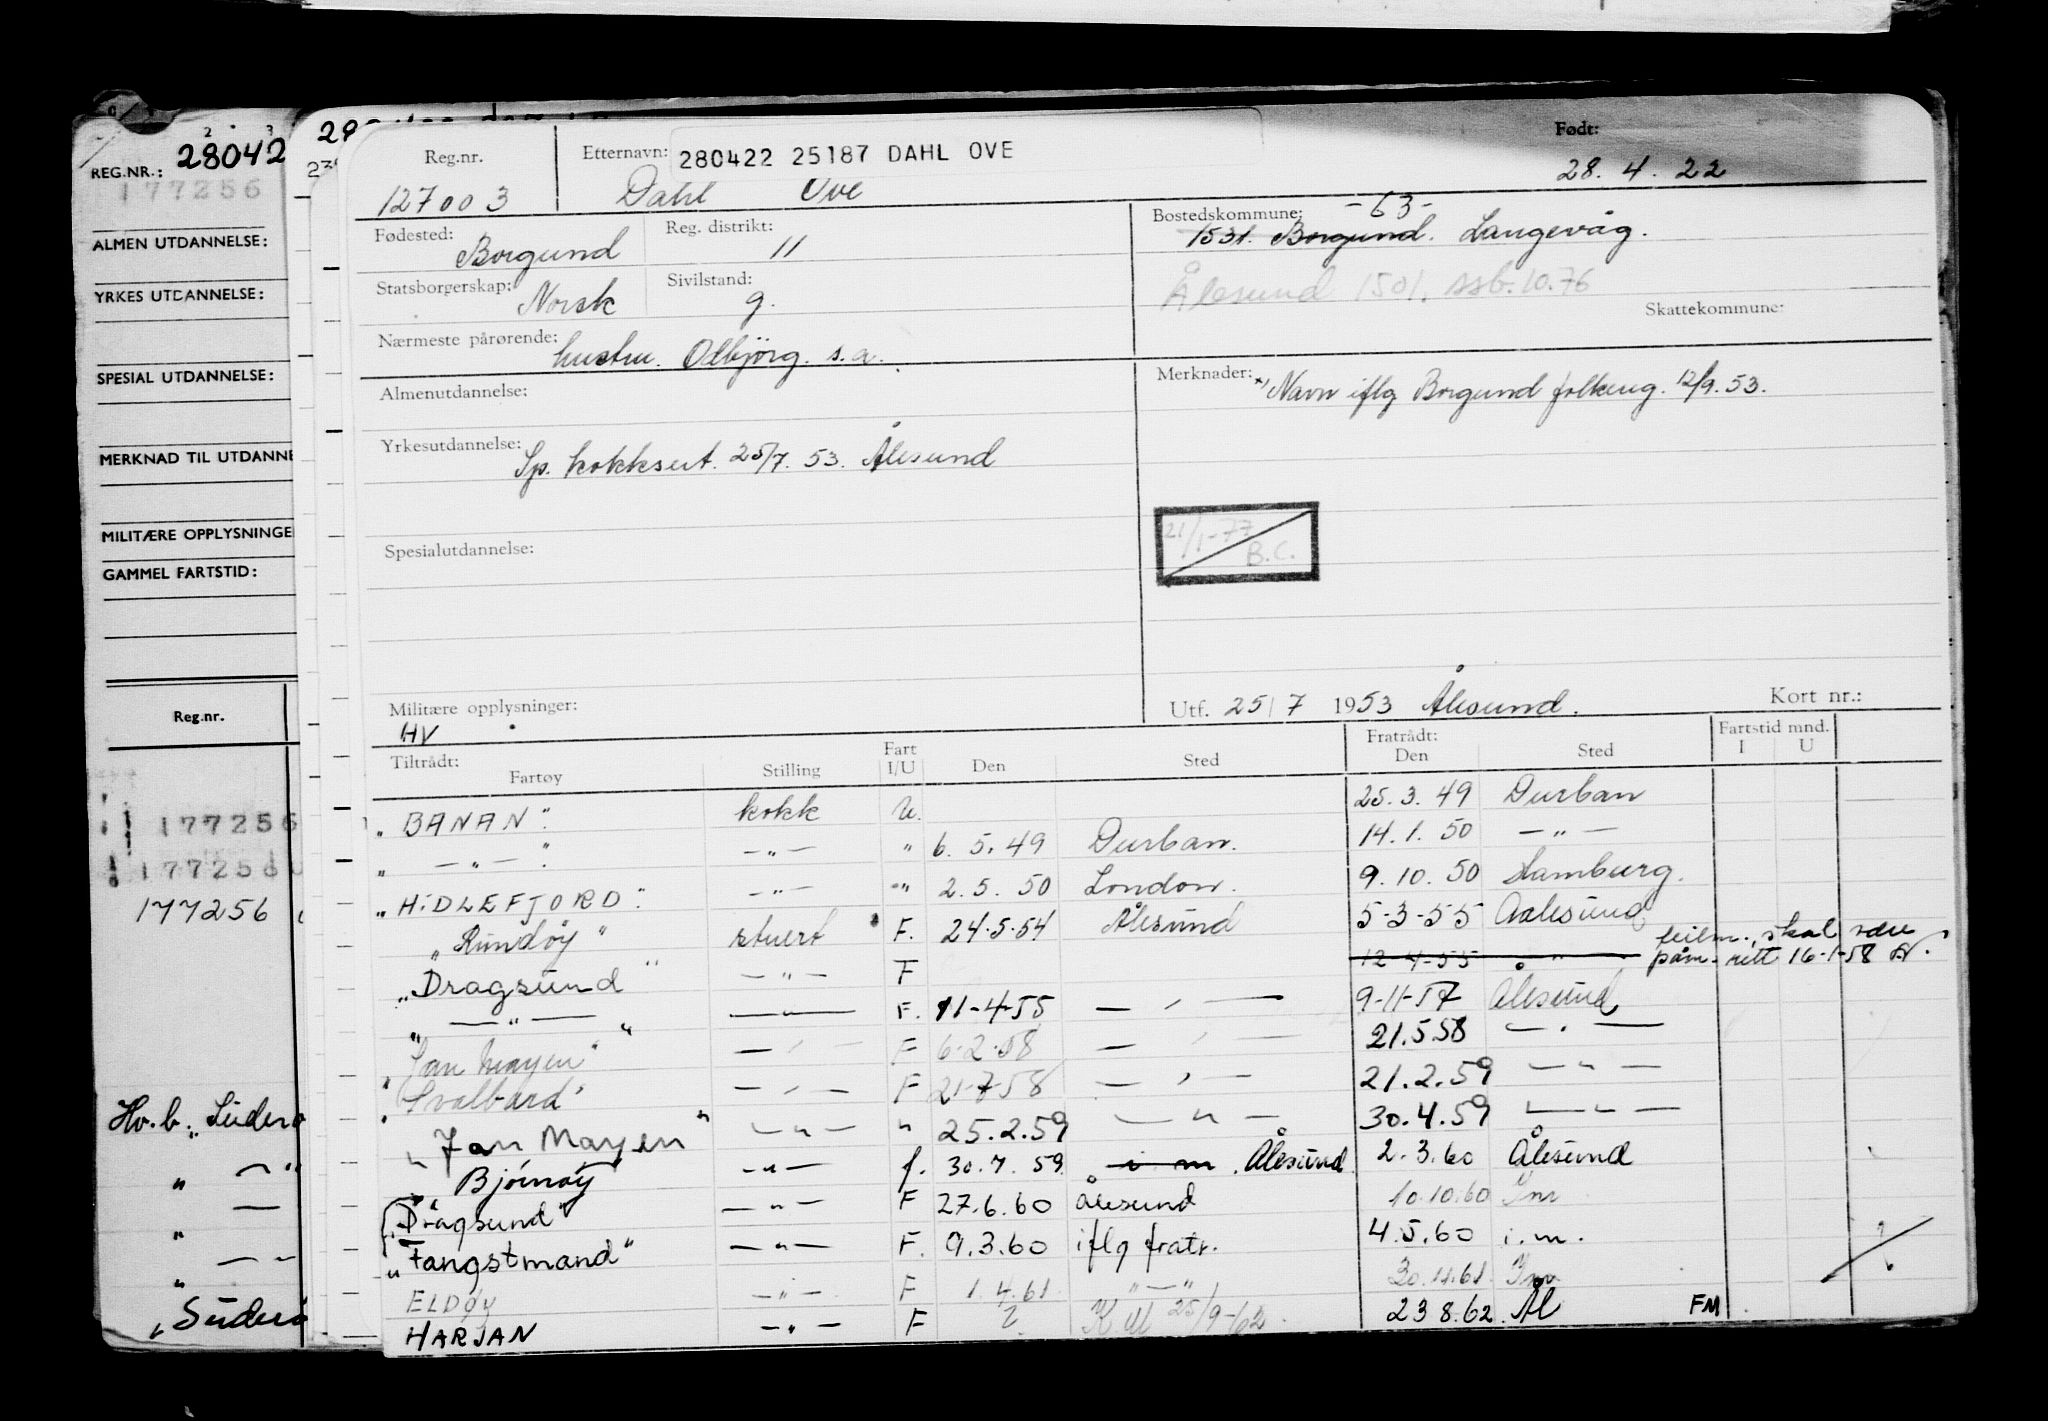 REG.NR.: 28042
177256
ALMEN UTDANNELSE:
YRKES UTDANNELSE:
SPESIAL UTDANNELSE:
MERKNAD TIL UTDANNE
MILITÆRE OPPLYSNINGE
GAMMEL FARTSTID:
Reg.nr.
177256
177256
177256
Hv.b. „Süderø
„ — "
„ —
„ — "
„Süderø
Reg.nr. Etternavn: 280422 25187 DAHL OVE Født:
127003 Dahl Ove 28. 4. 22
Fødested: Borgund Reg. distrikt: 11 Bostedskommune: -63-
1531. Borgund. Langevåg.
Statsborgerskap: Norsk Sivilstand: g. Ålesund 1501. ssb. 10.76
Skattekommune:
Nærmeste pårørende: hustru. Odbjörg. s.a.
Almenutdannelse: Merknader: x) Navn iflg Borgund folkereg. 12/9. 53.
Yrkesutdannelse: Sp. kokksert. 25/7. 53. Ålesund
Spesialutdannelse: 21/1-77 B.C.
Militære opplysninger: Utf. 25/7 1953 Ålesund. Kort nr.:
HV
Tiltrådt: Fratrådt: Fartstid mnd.
Fartøy Stilling Fart I/U Den Sted Den Sted I U
„BANAN". kokk U. 25. 3. 49 Durban
„ — " — ". — " — " 6. 5. 49 Durban. 14. 1. 50 — " —
„HIDLEFJORD". — " — " 2. 5. 50 London. 9. 10. 50 Hamburg.
„Rundöy" stuert F. 24-5-54 Ålesund 5-3-55 Aalesund
„Dragsund" — " — F 12-4-55 — " — feilm., skal være påm. rett 16-1-58
„ — " — " — " — F. 11-4-55 — " — 9-11-57 Ålesund
„Jan Mayen" — " — F 6-2-58 — " — 21.5.58 — " —
„Svalbard" — " — F 21-7-58 — " — 21.2.59 — " —
„Jan Mayen" — " — " 25.2.59 — " — 30.4.59 — " —
„Bjørnøy — " — f. 30.7.59 i m. Ålesund 2.3.60 Ålesund
„Dragsund" — " — F 27.6.60 Ålesund 10.10.60 Inn
„Fangstmand" — " — F. 9.3.60 iflg fratr. 4.5.60 i.m.
ELDØY — " — F 1.4.61 " — " 30.11.61. Inn
HARJAN — " — F ? K Ål 25/9-62. 23 8.62. Ål FM